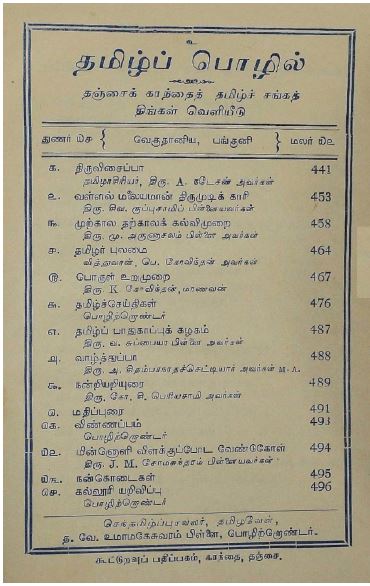 உ
தமிழ்ப் பொழில்
தஞ்சைக் கரந்தைத் தமிழ்ச் சங்கத்
திங்கள் வெளியீடு
துணர் ௰௪ { வெகுதானிய, பங்குனி } மலர் ௰௨
௧. திருவிசைப்பா 441
தமிழாசிரியர், திரு. A. நடேசன் அவர்கள்
௨. வள்ளல் மலையமான் திருமுடிக் காரி 453
திரு. சிவ. குப்புசாமிப் பிள்ளையவர்கள்
௩. முற்கால தற்காலக் கல்விமுறை 458
திரு. மு. அருணாசலம் பிள்ளை அவர்கள்
௪. தமிழர் புலமை 464
வித்துவான், பெ. கோவிந்தன் அவர்கள்
௫. பொருள் உறுமுறை 467
திரு K. கோவிந்தன், மாணவன்
௬. தமிழ்ச்செய்திகள் 476
பொழிற்றொண்டர்
௭. தமிழ்ப் பாதுகாப்புக் கழகம் 487
திரு. வ. சுப்பையா பிள்ளை அவர்கள்
௮. வாழ்த்துப்பா 488
திரு. அ. சிதம்பரநாதச்செட்டியார் அவர்கள் M.A.
௯. நன்றியறியுரை 489
திரு. கோ. சி. பெரியசாமி அவர்கள்
௰. மதிப்புரை 491
௰௧. விண்ணப்பம் 493
பொழிற்றொண்டர்
௰௨. மின்னொளி விளக்குப்போட வேண்டுகோள் 494
திரு. J. M. சோமசுந்தரம் பிள்ளையவர்கள்
௰௩. நன்கொடைகள் 495
௰௪. கல்லூரி யறிவிப்பு 496
பொழிற்றொண்டர்
செந்தமிழ்ப்புரவலர், தமிழவேள்,
த. வே. உமாமகேசுவரம் பிள்ளை, பொழிற்றொண்டர்.
கூட்டுறவுப் பதிப்பகம், கரந்தை, தஞ்சை.